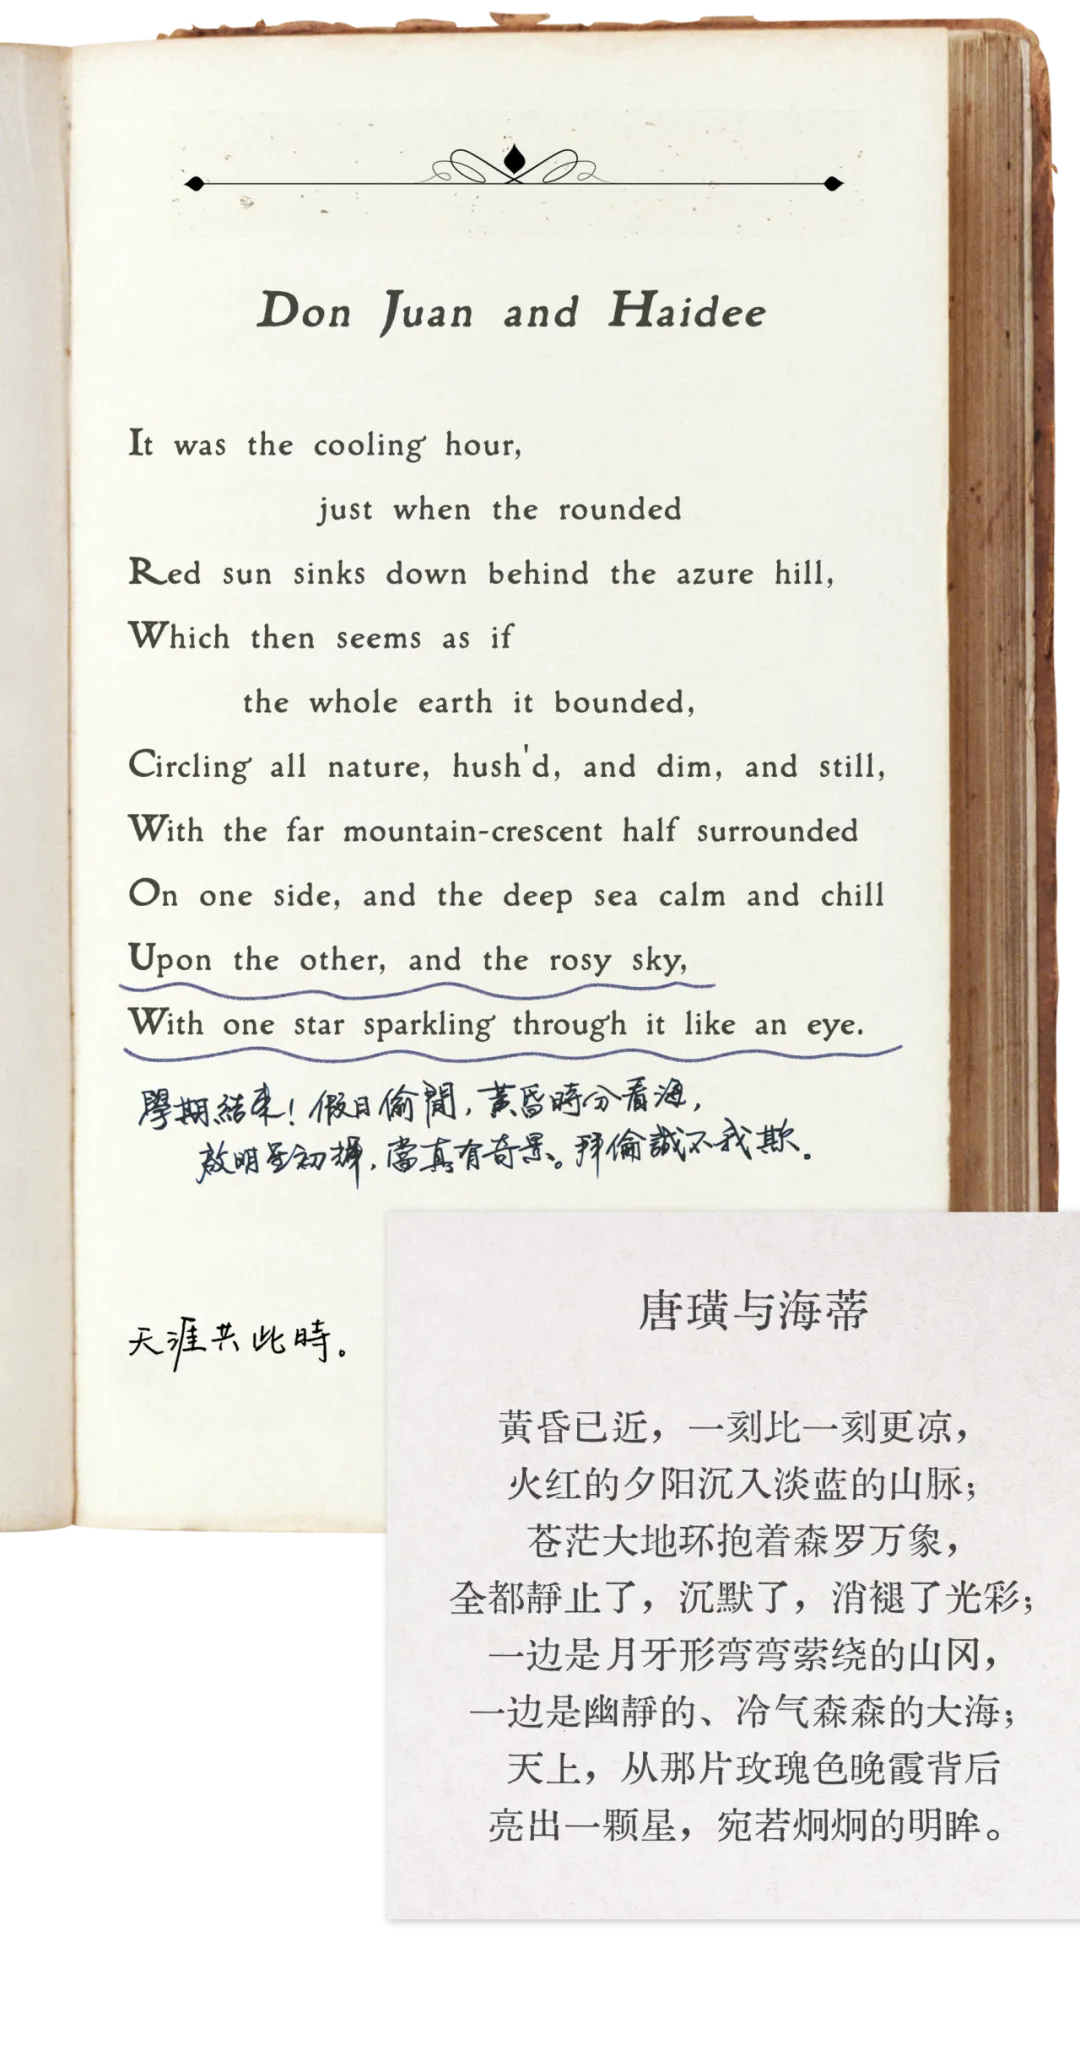 Don Juan and Haidee
It was the cooling hour,
just when the rounded
Red sun sinks down behind the azure hill,
Which then seems as if
the whole earth it bounded,
Circling all nature, hush'd, and dim, and still,
With the far mountain-crescent half surrounded
On one side, and the deep sea calm and chill
Upon the other, and the rosy sky,
With one star sparkling through it like an eye.
學期結束！假日偷閒，黃昏時分看海，
啟明星初擇，當真有奇景。拜倫誠不我欺。
天涯共此時。
唐璜与海蒂
黄昏已近，一刻比一刻更凉，
火红的夕阳沉入淡蓝的山脉；
苍茫大地环抱着森罗万象，
全都静止了，沉默了，消褪了光彩；
一边是月牙形弯弯萦绕的山冈，
一边是幽静的、冷气森森的大海；
天上，从那片玫瑰色晚霞背后
亮出一颗星，宛若炯炯的明眸。